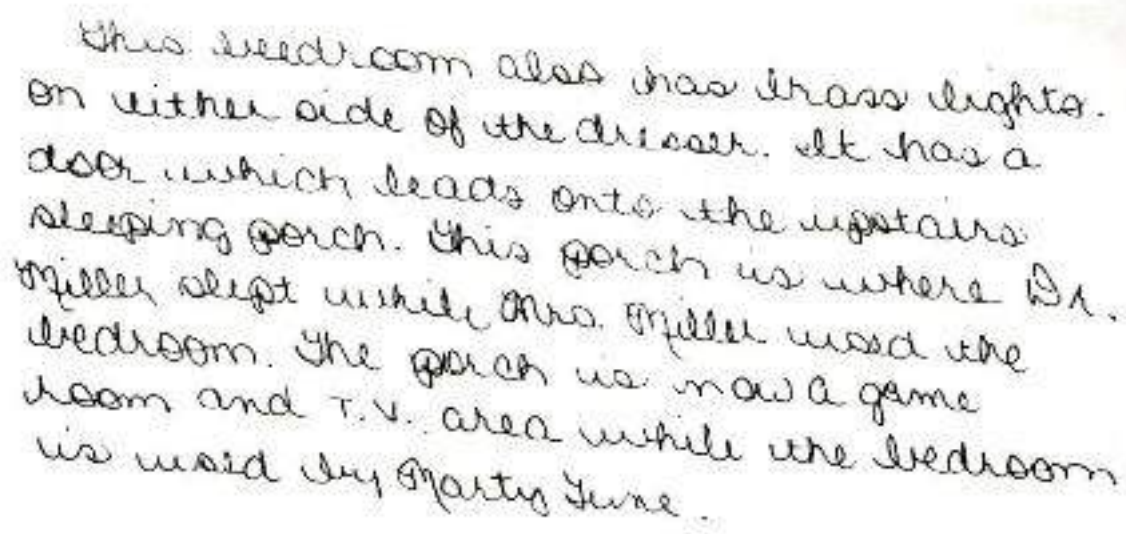 This bedroom also has brass lights.
on either side of the dresser. It has a
door which leads onto the upstairs
sleeping porch. This porch is where Dr.
Miller slept while Mrs. Miller used the
bedroom. The porch is now a game
room and T.V. area while the bedroom
is used by Marty June.